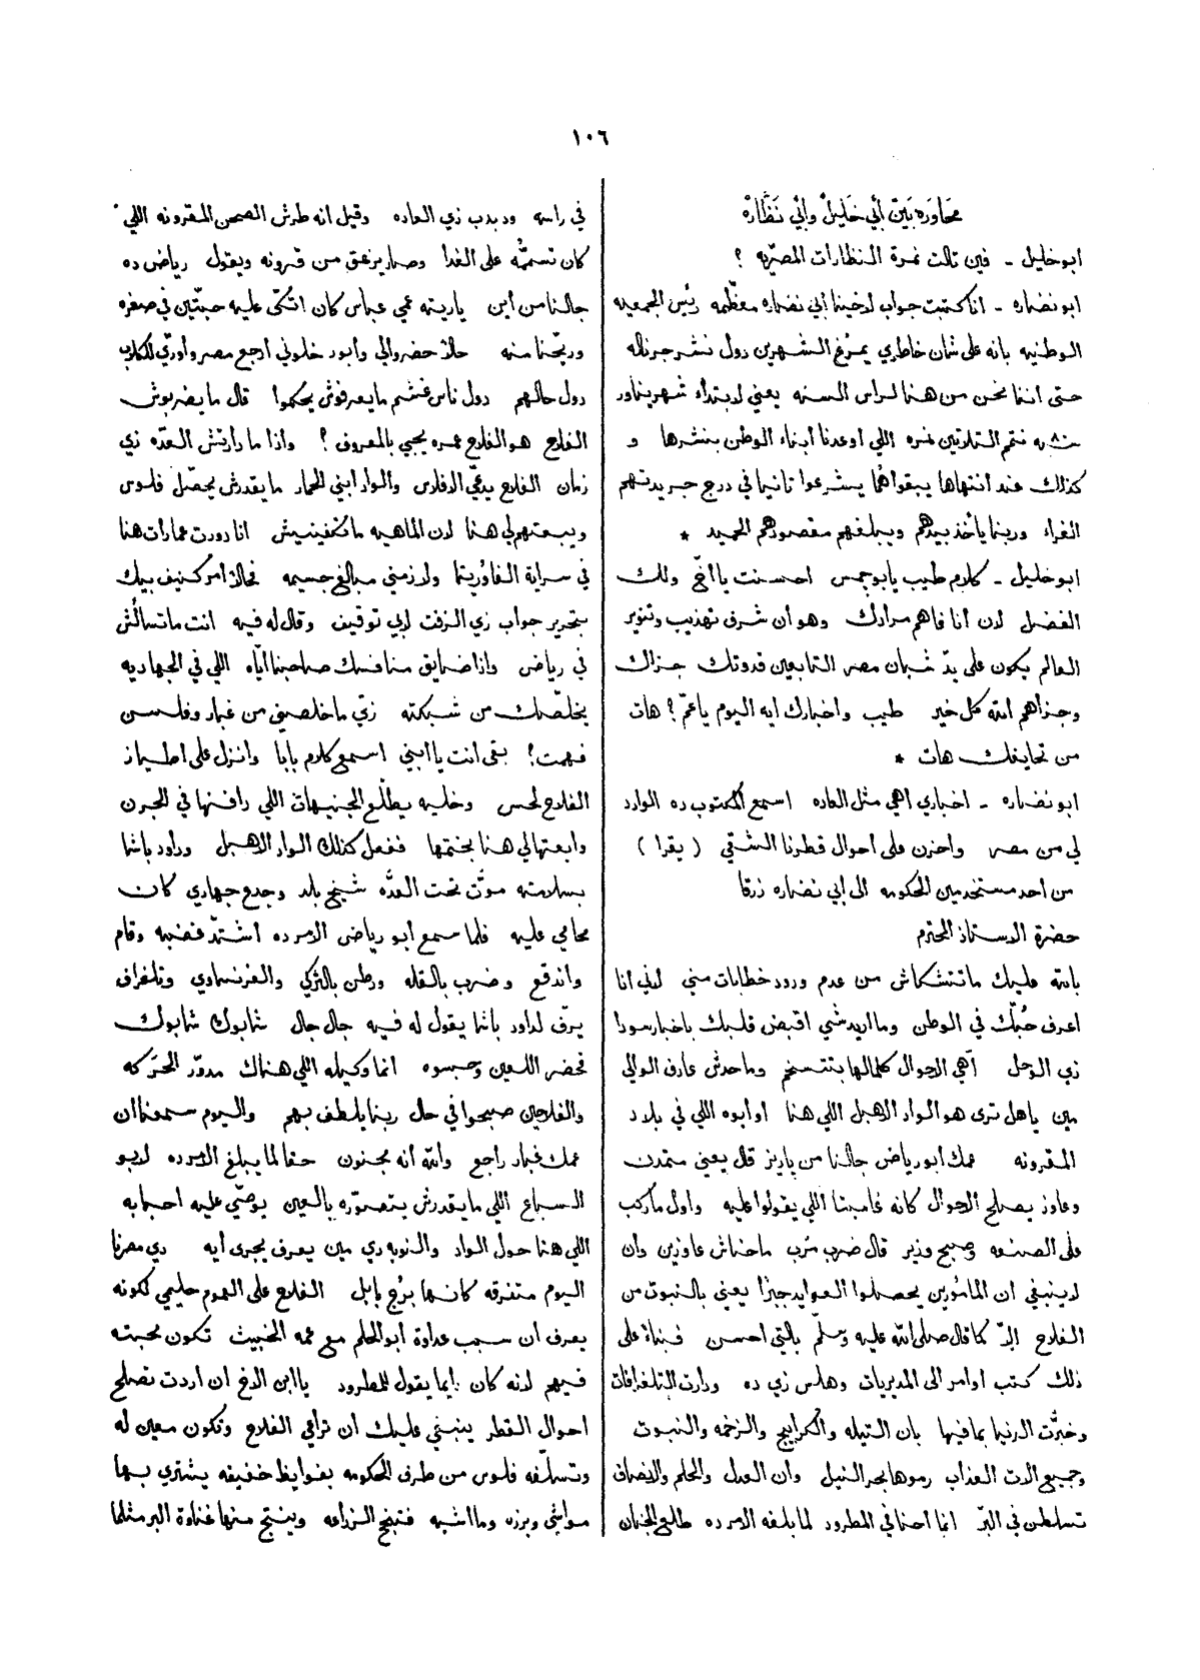 ١٠٦
محاوره بين أبي خليل وأبي نظاره
ابو خليل - فين تالت نمرة النظارات المصريه ؟
ابو نضاره - انا كتبت جواب لاخينا أبي نضاره معظمه رئيس الجمعيه
الوطنيه بانه على شان خاطري يمرغ الشهرين دول نشر جرناله
حتى اننا نحن من هنا لراس السنه يعني لابتداء شهر يناور
سنه نتم التلاتين نمره اللي اوعدنا أبناء الوطن بنشرها و
كذلك عند انتهاها يبقوا هما يشرعوا تانيا في درج جريدتهم
الغراء وربنا يأخذ بيدهم ويبلغهم مقصودهم الحميد *
ابو خليل - كلام طيب يابو احسنت يا اخي ولك
الفضل لان أنا فاهم مرادك وهو أن شرف تهذيب وتنوير
العالم يكون على يد شبان مصر التابعين قدوتك جزاك
وجزاهم الله كل خير طيب واخبارك ايه اليوم يا عم ؟ هات
من تحايفك هات *
ابو نضاره - اخباري اهي مثل العاده اسمع المكتوب ده الوارد
لي من مصر واحزن على احوال قطرنا الشقي ( يقرا )
من احد مستخدمين الحكومه الى ابي نضاره زرقا
حضرة الاستاذ المحترم
بالله عليك ماتتشكاش من عدم ورود خطابات مني لاني انا
اعرف حبك في الوطن وما اريد شي اقبض قلبك باخبار سودا
زي الوحل آهي الاحوال كلمالها بتتسخم وما حدش عارف الوالي
مين ياهل ترى هو الواد الاهبل اللي هنا او أبوه اللي في بلاد
المقرونه عمك ابو رياض جالنا من باريز قال يعني متمدن
وعاوز يصلح الاحوال كانه غامبتا اللي يقولوا عليه واول ما ركب
على الصنعه وصبح وزير قال ضرب مرب ماحناش عاوزين وان
لا ينبغي ان المأمورين يحصلوا العوايد جبرا يعني بالنبوت من
الفلاح الا كما قال صلى الله عليه وسلم بالتي احسن فبناء على
ذلك كتب اوامر الى المديريات وهلس زي ده ودارت التلغرافات
وخبرت الدنيا بمافيها بان التيله والكرابيج والزخمه والنبوت
وجميع الات العذاب رموها بحر النيل وان العدل والحلم والانصاف
تسلطن في البر انما أحنا في المطرود لما بلغه الامر ده طلع الجنان
في راسه ودبدب زي العاده وقيل انه طرش الصحن المقرونه اللي
كان تسممه على الغدا وصار يزعق من قرونه ويقول رياض ده
جالنا من أين ياريته عمي عباس كان اتكى عليه حبتين في صغره
وريحنا منه حلا حضروالي وأبور خلوني ارجع مصر واوري للكلاب
دول حالهم دول ناس غشم ما يعرفوش يحكموا قال ما يضربوش
الفلاح هو الفلاح عمره يجيي بالمعروف ؟ واذا ما دارتش العده زي
زمان الفلاح يدعي الافلاس والواد ابني الحمار ما يقدرش يحصل فلوس
ويبعتهم لي هنا لان الماهيه ما تكفينيش انا دورت عمارات هنا
في سراية الفاوريتا ولازمني مبالغ جسيمه فحالا أمر كنيف بيك
بتحرير جواب زي الزفت لابي توقيف وقال له فيه انت ماتسألش
في رياض واذا ضايق منافسك صاحبنا اياه اللي في الجهاديه
يخلصك من شبكته زي ما خلصني من غبار وفلسن
فهمت ؟ بقى انت يا ابني اسمع كلام بابا وانزل على اطياز
الفلاح لحس وخليه يطلع الجنيهات اللي دافنها في الجرن
وابعتها لي هنا بختمها ففعل كذلك الواد الاهبل وداود باشا
بسلامته موت تحت العده شيخ بلد وجدع جهادي كان
محامي عليه فلما سمع ابو رياض الامر ده اشتد غضبه وقام
واندفع وضرب بالقله ورطن بالتركي والفرنساوي وتلغراف
برق لداود باشا يقول له فيه جال جال شابوك شابوك
فحضر اللعين وحبسوه انما وكيله اللي هناك مدور الحركه
والفلاحين صبحوا في حال ربنا يلطف بهم واليوم سمعنا ان
عمك غبار راجع والله أنه مجنون حقا لما يبلغ الامر ده لابو
السباع اللي ما يقدرش يتصوره بالعين يوصي عليه احبابه
اللي هنا حول الواد والنوبه دي مين يعرف يجرى أيه دي مصرنا
اليوم متفرقه كانها برج بابل الفلاح على العموم حليمي لكونه
يعرف أن سبب عداوة أبو الحلم مع عمه الخبيث تكون محبته
فيهم لانه كان دايما يقول للمطرود يا ابن الاخ ان اردت تصلح
احوال القطر ينبغي عليك أن تراعي الفلاح وتكون معين له
وتسلفه فلوس من طرف الحكومه بفوايظ خفيفه يشتري بها
مواشي وبزره وما اشبه فتنجح الزراعه وينتج منها غناوة البر مثلما